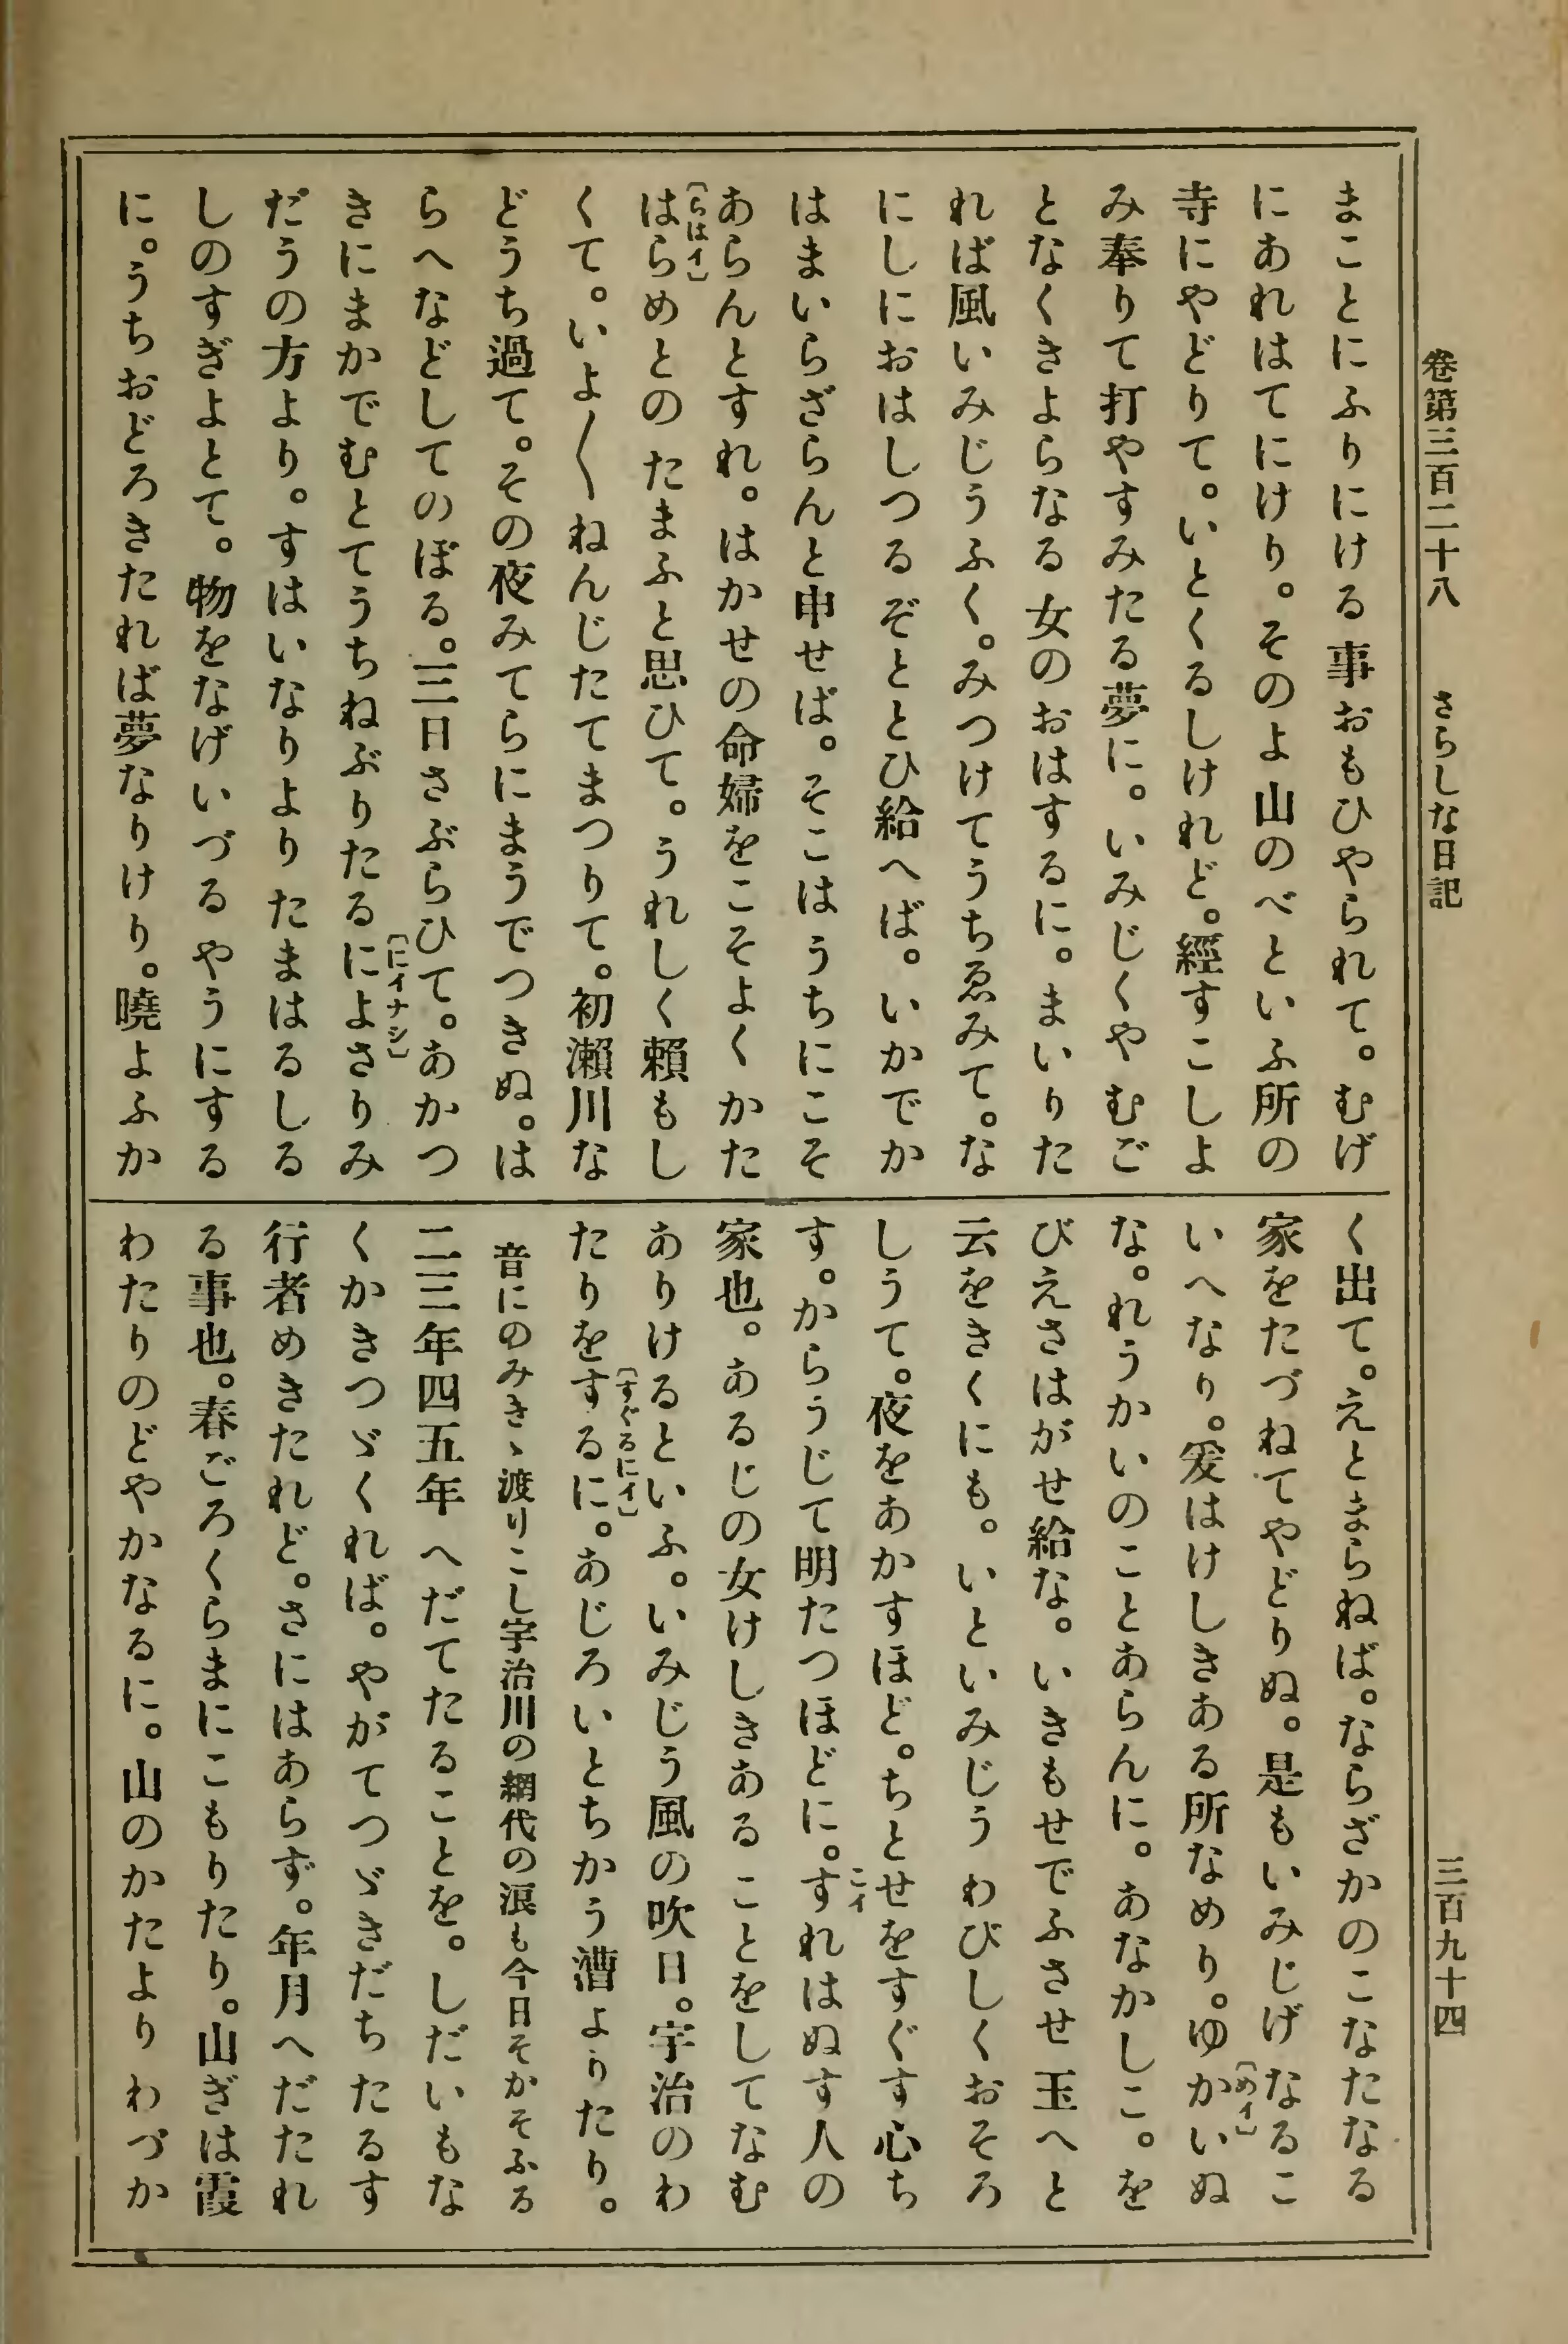 卷第三百二十八　さらしな日記　三百九十四
まことにふりにける事おもひやられて。むげ
にあれはてにけり。そのよ山のべといふ所の
寺にやどりて。いとくるしけれど。經すこしよ
み奉りて打やすみたる夢に。いみじくやむご
となくきよらなる女のおはするに。まいりた
れば風いみじうふく。みつけてうちゑみて。な
にしにおはしつるぞととひ給へば。いかでか
はまいらざらんと申せば。そこはうちにこそ
あらんとすれ。はかせの命婦をこそよくかた
〔らはイ〕
はらめとのたまふと思ひて。うれしく賴もし
くて。いよ〳〵ねんじたてまつりて。初瀨川な
どうち過て。その夜みてらにまうでつきぬ。は
らへなどしてのぼる。三日さぶらひて。あかつ
〔にイナシ〕
きにまかでむとてうちねぶりたるによさりみ
だうの方より。すはいなりよりたまはるしる
しのすぎよとて。物をなげいづるやうにする
に。うちおどろきたれば夢なりけり。曉よふか
く出て。えとまらねば。ならざかのこなたなる
家をたづねてやどりぬ。是もいみじげなるこ
〔めイ〕
いへなり。爰はけしきある所なめり。ゆかいぬ
な。れうかいのことあらんに。あなかしこ。を
びえさはがせ給な。いきもせでふさせ玉へと
云をきくにも。いといみじうわびしくおそろ
しうて。夜をあかすほど。ちとせをすぐす心ち
こイ
す。からうじて明たつほどに。すれはぬす人の
家也。あるじの女けしきあることをしてなむ
ありけるといふ。いみじう風の吹日。宇治のわ
〔すぐるにイ〕
たりをするに。あじろいとちかう漕よりたり。
音にのみきゝ渡りこし宇治川の網代の浪も今日そかそふる
二三年四五年へだてたることを。しだいもな
くかきつゞくれば。やがてつゞきだちたるす
行者めきたれど。さにはあらず。年月へだたれ
る事也。春ごろくらまにこもりたり。山ぎは霞
わたりのどやかなるに。山のかたよりわづか